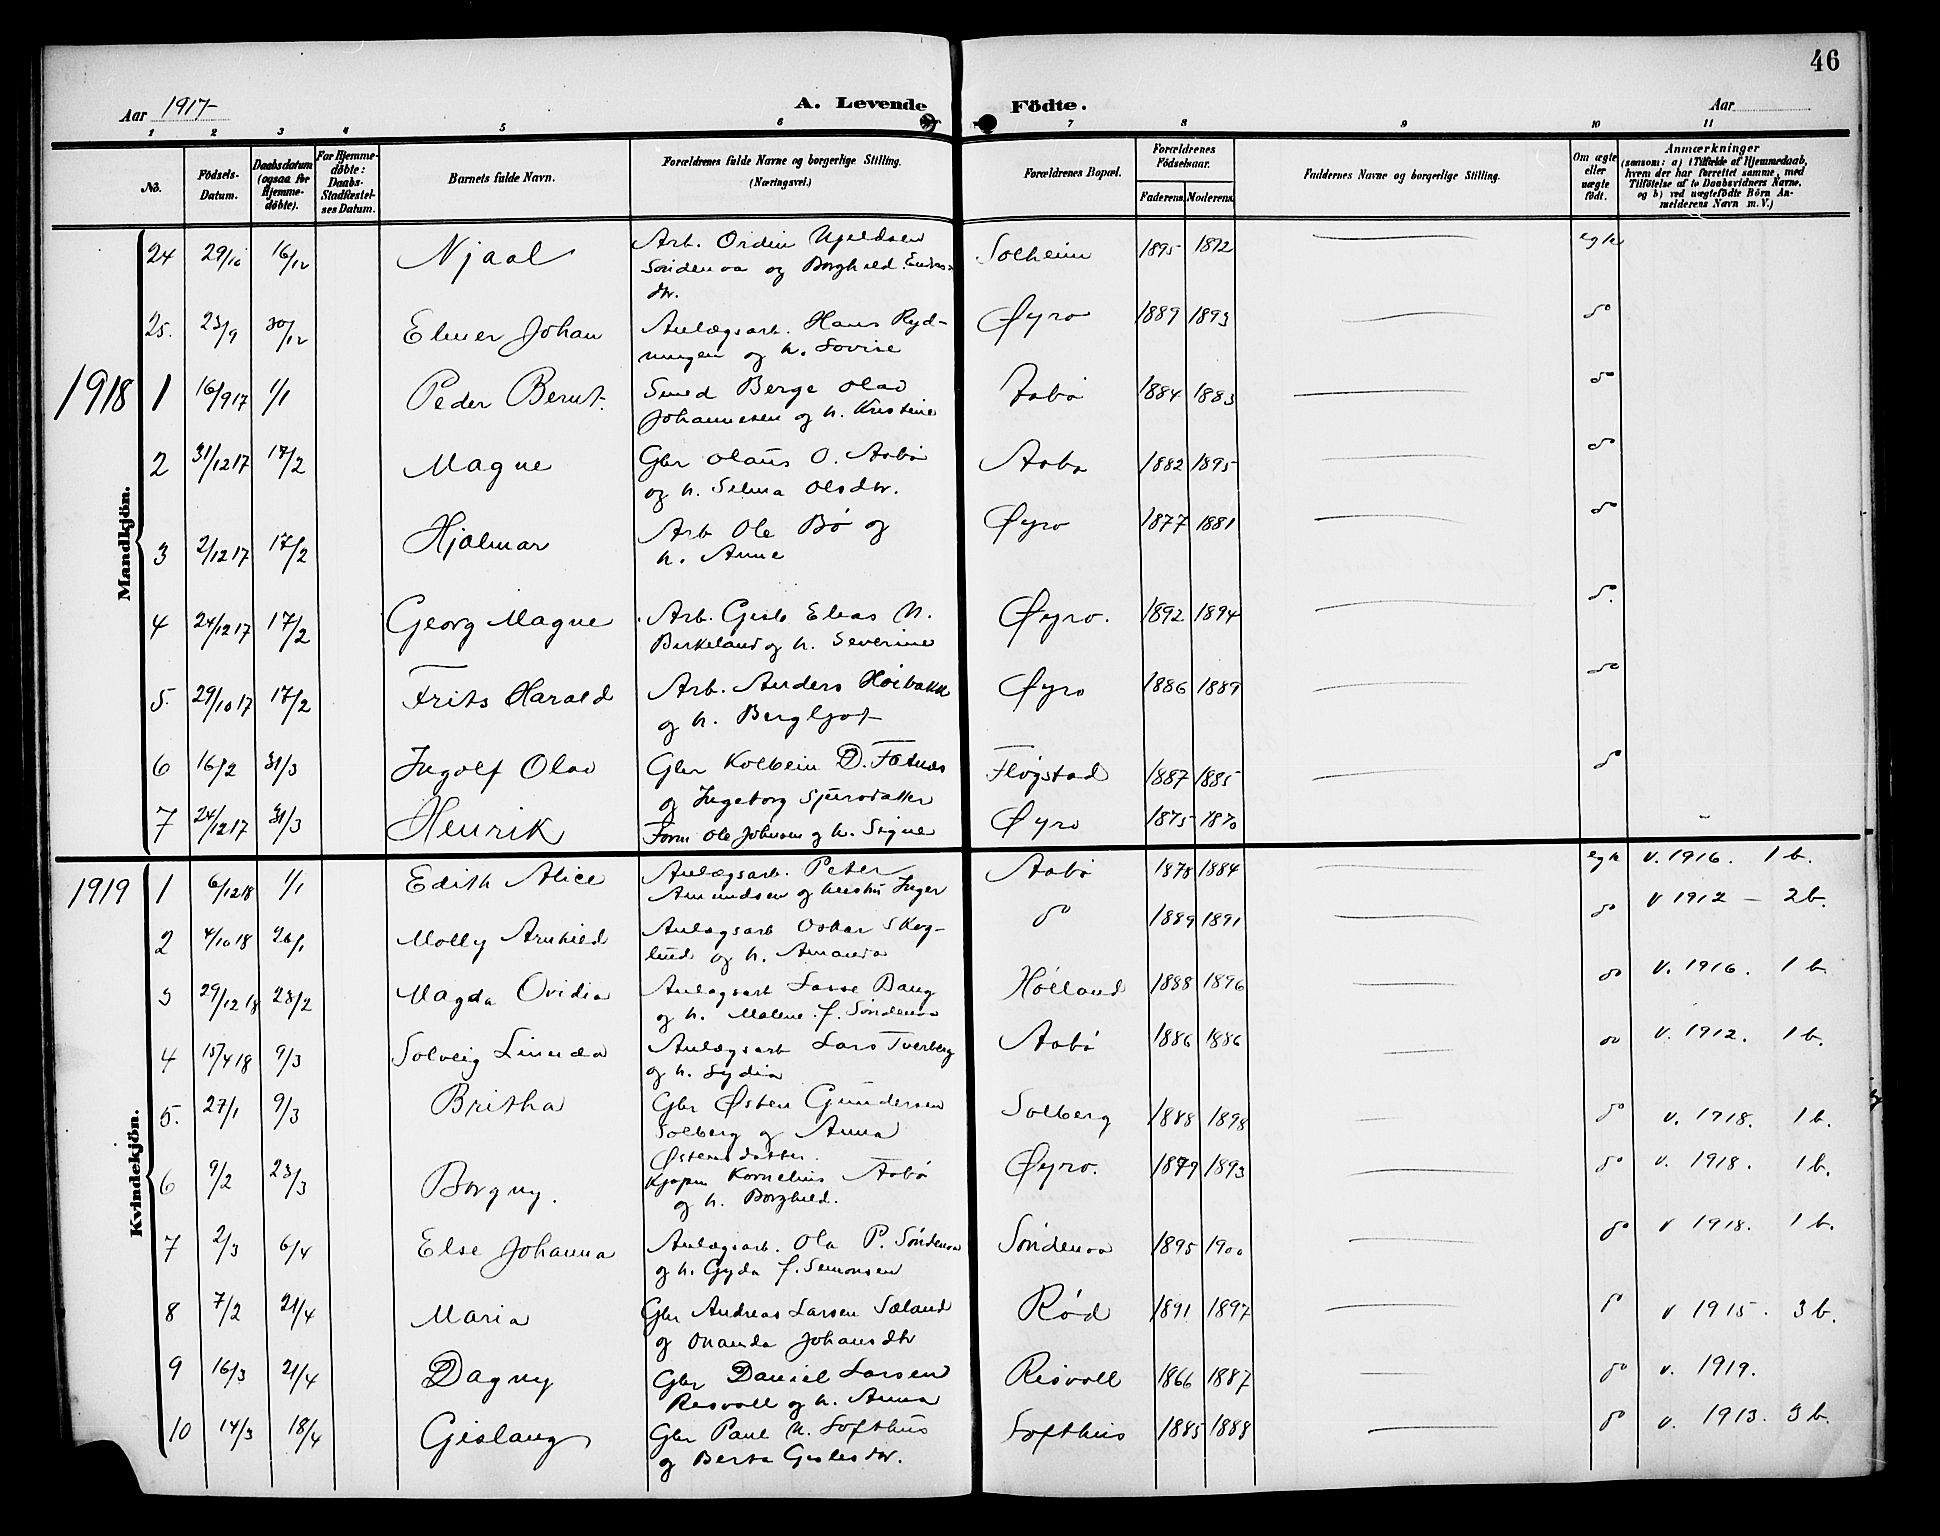 46
Aar 1917
A. Levende Födte.
Aar
1 2 3 4 5 6 7 8 9 10 11
No.
Födsels-Datum.
Daabsdatum (ogsaa for Hjemmedöbte).
For Hjemmedöbte: Daabs-Stadfæstelses Datum.
Barnets fulde Navn.
Forældrenes fulde Navne og borgerlige Stilling. (Næringsvei.)
Forældrenes Bopæl.
Forældrenes Födselsaar.
Faderens. Moderens.
Faddernes Navne og borgerlige Stilling.
Om ægte eller uægte født.
Anmærkninger
(saasom: a) i Tilfælde af Hjemmedaab, hvem der har forrettet samme, med Tilföielse af to Daabsvidners Navne, og b) ved uægtefödte Börn Anmelderens Navn m. V.)
Mandkjön.
24 29/10 16/12 Njaal Arb. Ordin
Söndenaa og Borghild Endres- Solheim 1895 1892 egte
dtr.
25. 23/9 30/12 Elmer Johan Anlægsarb. Hans Ryd- Øyro 1889 1893 do
ningen og h. Lovise
1918 1 16/9 17 1/1 Peder Bernt. Smed Berge Olav Aabö 1884 1883 do
Johannesen og h. Kristine
2 31/12 17 17/2 Magne Gbr Olaus O. Aabö Aabö 1882 1895 do
og h. Selma Olsdtr.
3 2/12 17 17/2 Hjalmar Arb Ole Bö og Øyro 1877 1881 do
h. Anne
4 24/12 17 17/2 Georg Magne Arb. Elias N. Øyro. 1892 1894 do.
Birkeland og h. Severine
5. 29/10 17 17/2 Frits Harald Arb. Anders Höibakk Øyro 1886 1889 do
og h. Bergljot
6 16/2 31/3 Ingolf Olav Gbr Kolbein D. Fatnes Fløgstad 1887 1885 do
og Ingeborg Sjursdatter
7 24/12 17 31/3 Henrik Form Ole Johnsen og h. Signe Øyro 1875 1870
Kvindekjön.
1919 1 6/12 18 1/1 Edith Alice Anlægsarb. Peter Aabö 1878 1884 egte v. 1916. 1 b.
Amundsen og hustru Inger
2 4/10 18 26/1 Molly Arnhild Anlægsarb Oskar Skog- do 1889 1891 do v 1912 – 2 b.
lund og h. Amanda
3 29/12 18 23/2 Magda Ovidia Anlægsarb Lasse Bang Hölland 1888 1896 do v. 1916. 1 b.
og h. Malene f. Söndenaa
4 15/4 18 9/3 Solveig Linnea Anlægsarb Lars Tverberg Aabö 1886 1886 do v. 1912. 1 b.
og h. Lydia
5. 27/1 9/3 Britha Gbr Østen Gundersen Solberg 1888 1898 do v. 1918. 1 b.
Solberg og Anna
Østensdatter.
6 9/2 23/3 Borgny. Kjøpm Kornelius Aabö Øyro. 1879 1893 do v. 1918. 1 b.
og h. Borghild.
7 2/3 6/4 Else Johanna Anlægsarb. Ola P. Söndenaa Söndenaa 1895 1900 do v 1918. 1 b.
og h. Gyda f. Simonsen
8 7/2 21/4 Maria Gbr Andreas Larsen Sæland Rød 1891 1897 do v 1915. 3 b.
og Johansdtr
9 16/3 21/4 Dagny Gbr Daniel Larsen Risvoll 1866 1887 do v. 1919.
Risvoll og h. Anna
10 14/3 18/4 Gislaug Gbr Paul N. Softhus Softhus 1885 1888 do v. 1913. 3 b.
og Berta Gislesdtr.